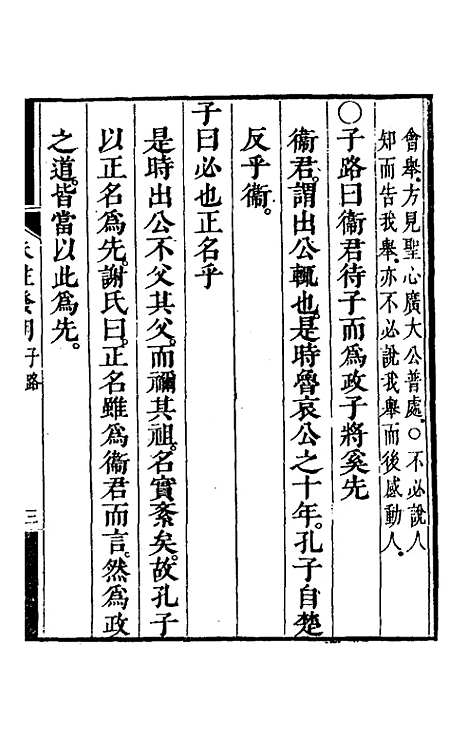 會舉方見聖心廣大公普處○不必說人
知而告我舉亦不必說我舉而後感動人
○子路曰衞君待子而爲政子將奚先
衞君謂出公輒也是時魯哀公之十年孔子自楚
反乎衞
子曰必也正名乎
是時出公不父其父而禰其祖名實紊矣故孔子
以正名爲先謝氏曰正名雖爲衞君而言然爲政
之道皆當以此爲先
子路
三